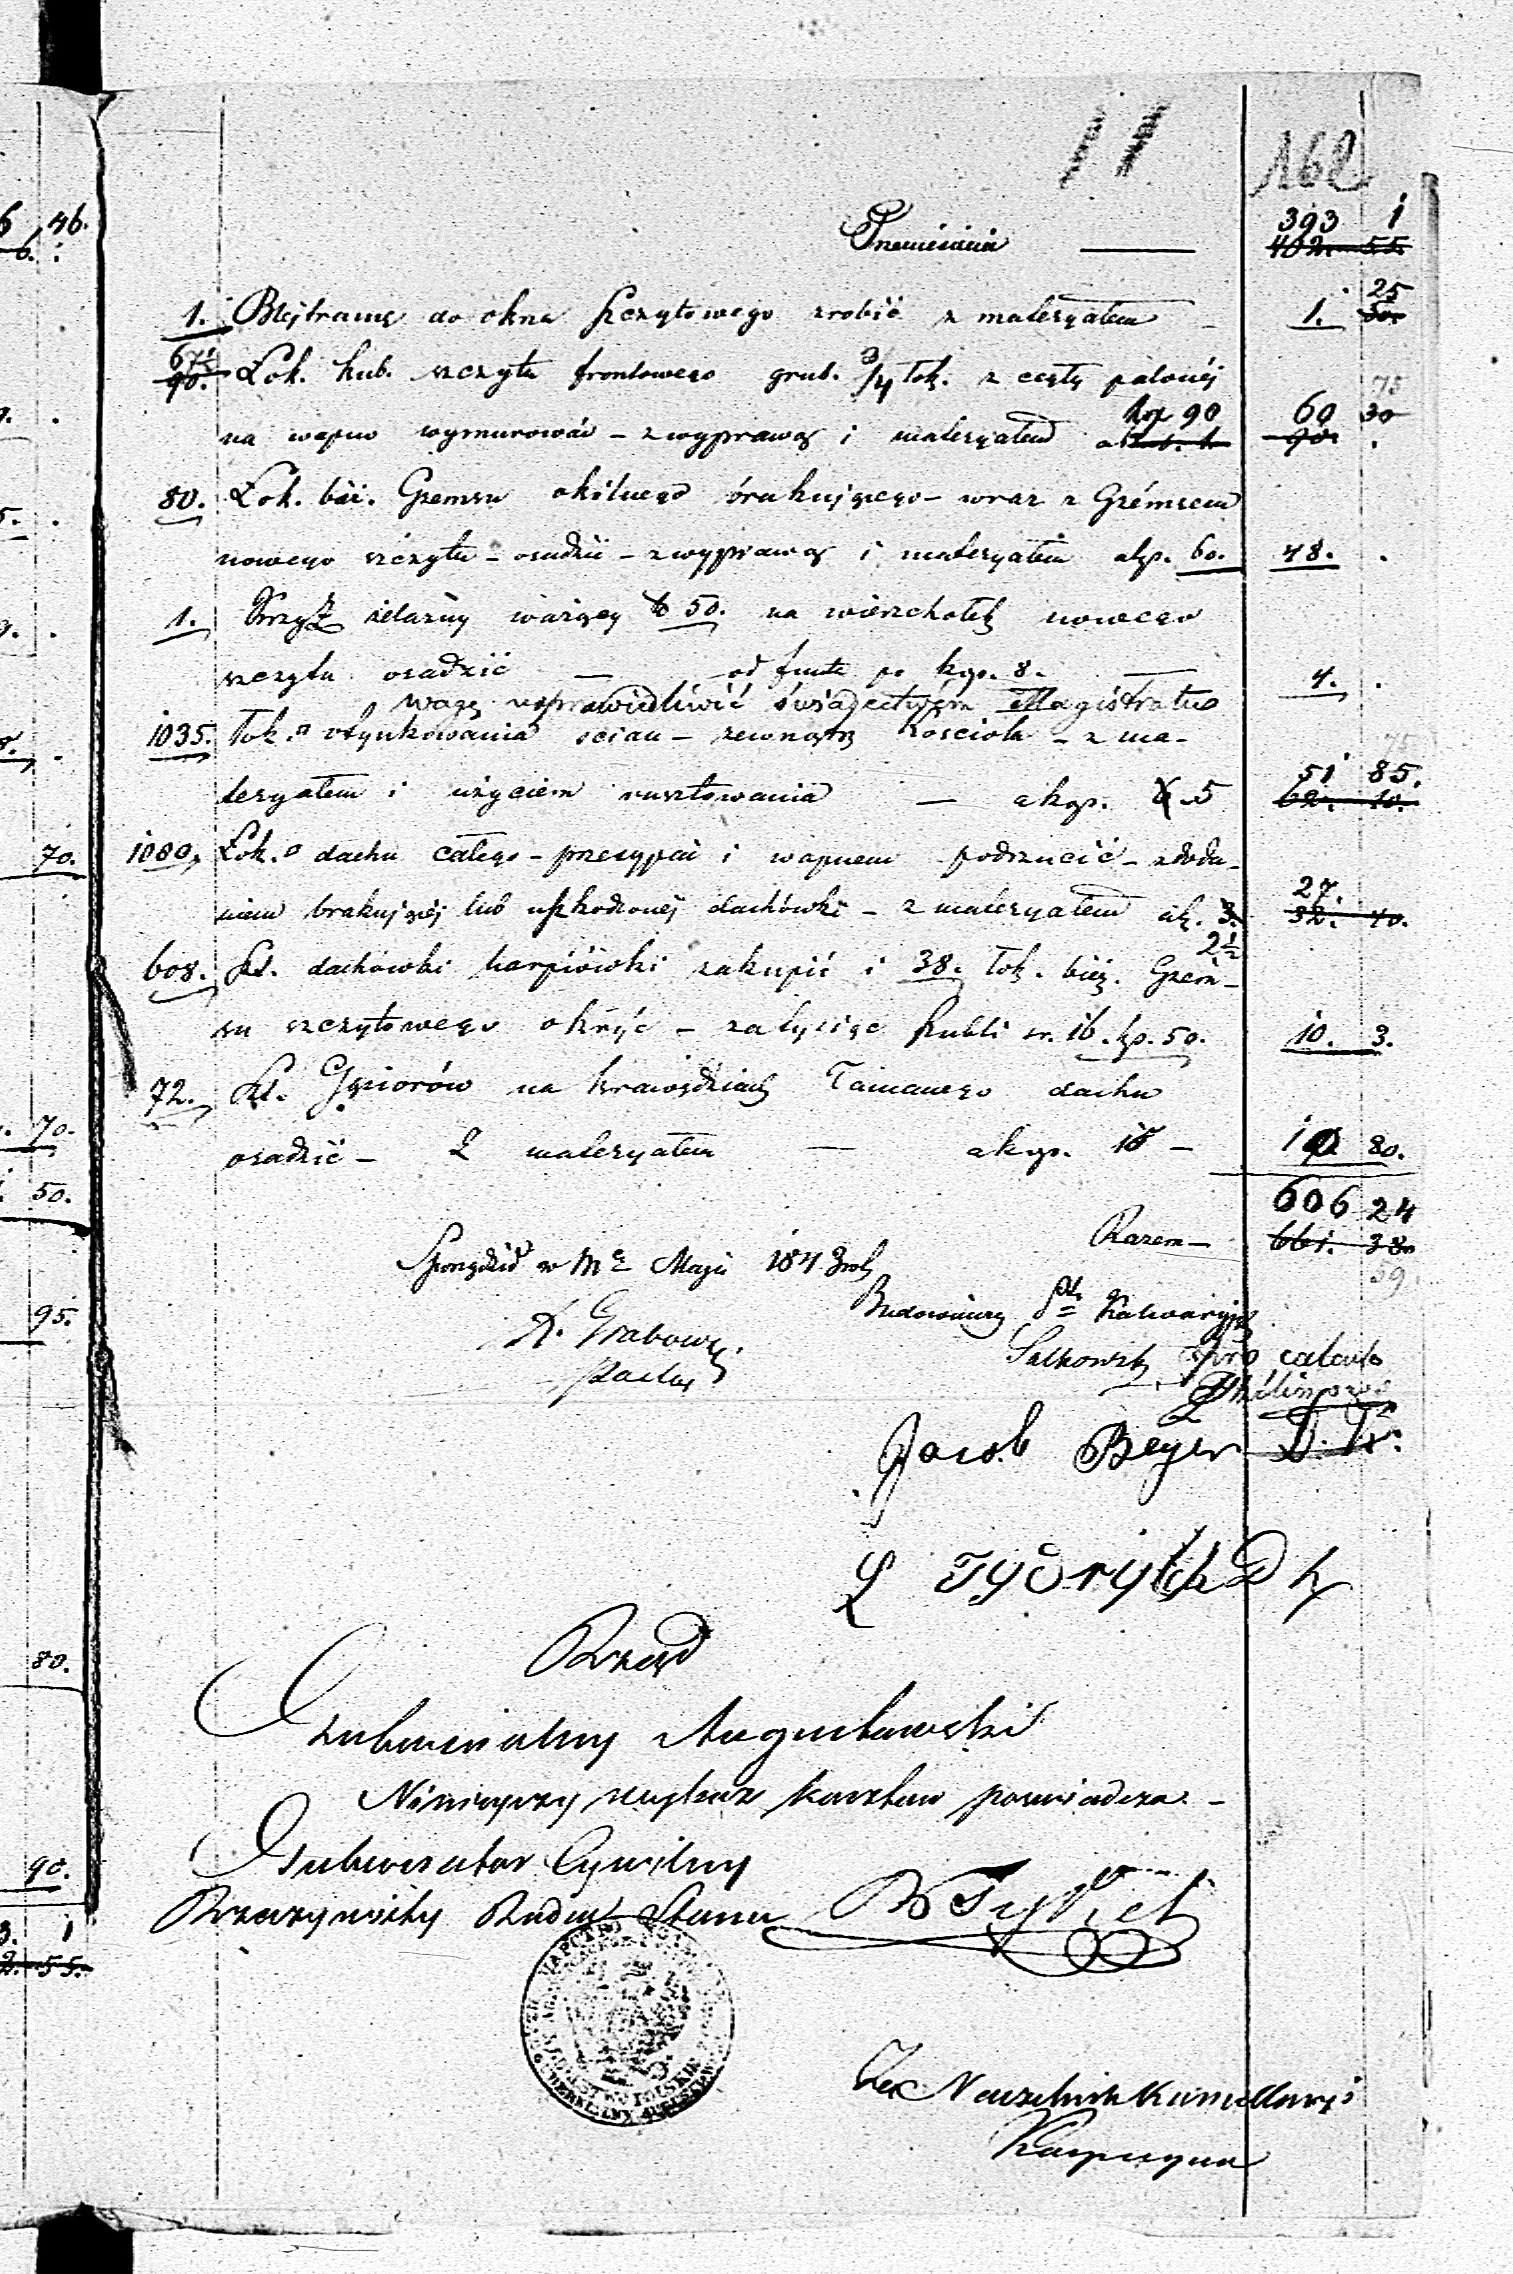 11 162
Przeniesienie — 393 1
402. 55.
1. Blejtramę do okna szczytowego zrobić z materyałem 1. 25
50.
67½
90. Łok. kub. szczytu frontowego grub. 3/4 łok. z cegły palonej 75
na wapno wymurować – z wyprawą i materyałem a kop 90 60 30
90. .
80. Łok. bie. Gzemsu okólnego brakującego – wraz z Gzémsem
nowego szczytu – osadzić – z wyprawą i materyałem akp. 60. 48. .
1. Krzyż żelazny ważący 50. na wierzchołek nowego
szczytu osadzić — od funta po kop. 8. — 4. .
wagę usprawiedliwić świadectwem Magistratu
1035. łok. □ otynkowania ścian – zewnątrz Kościoła – z ma- 75
teryałem i użyciem rusztowania — a kop. 6 5 51 85.
62. 10.
1080. Łok. □ dachu całego – przesypać i wapnem podrzucić – z doda-
niem brakującej lub uszkodzonej dachówki – z materyałem ak. 3. 27.
32. 40.
2½
608. Szt. dachówki karpiówki zakupić i 38. łok. bież. Gzem-
su szczytowego okryć – za tysiąc Rubli sr. 16. kp. 50. 10. 3.
72. Szt. Gąsiorów na krawędziach łamanego dachu
osadzić – z materyałem — a kop. 15 – 10 80.
606 24
Razem – 661. 38
59.
Sporządził w Mc Maju 1843 rok
Budowniczy Ptu Kalwaryjs
A. Grabows
Salkowski pro calculo
Jacob Beyer D. K.
Rząd
Gubernialny Augustowski
Niniejszy wykaz kosztów poświadcza –
Gubernator Cywilny
Rzeczywisty Radca Stanu
Za Naczelnik Kancellaryi